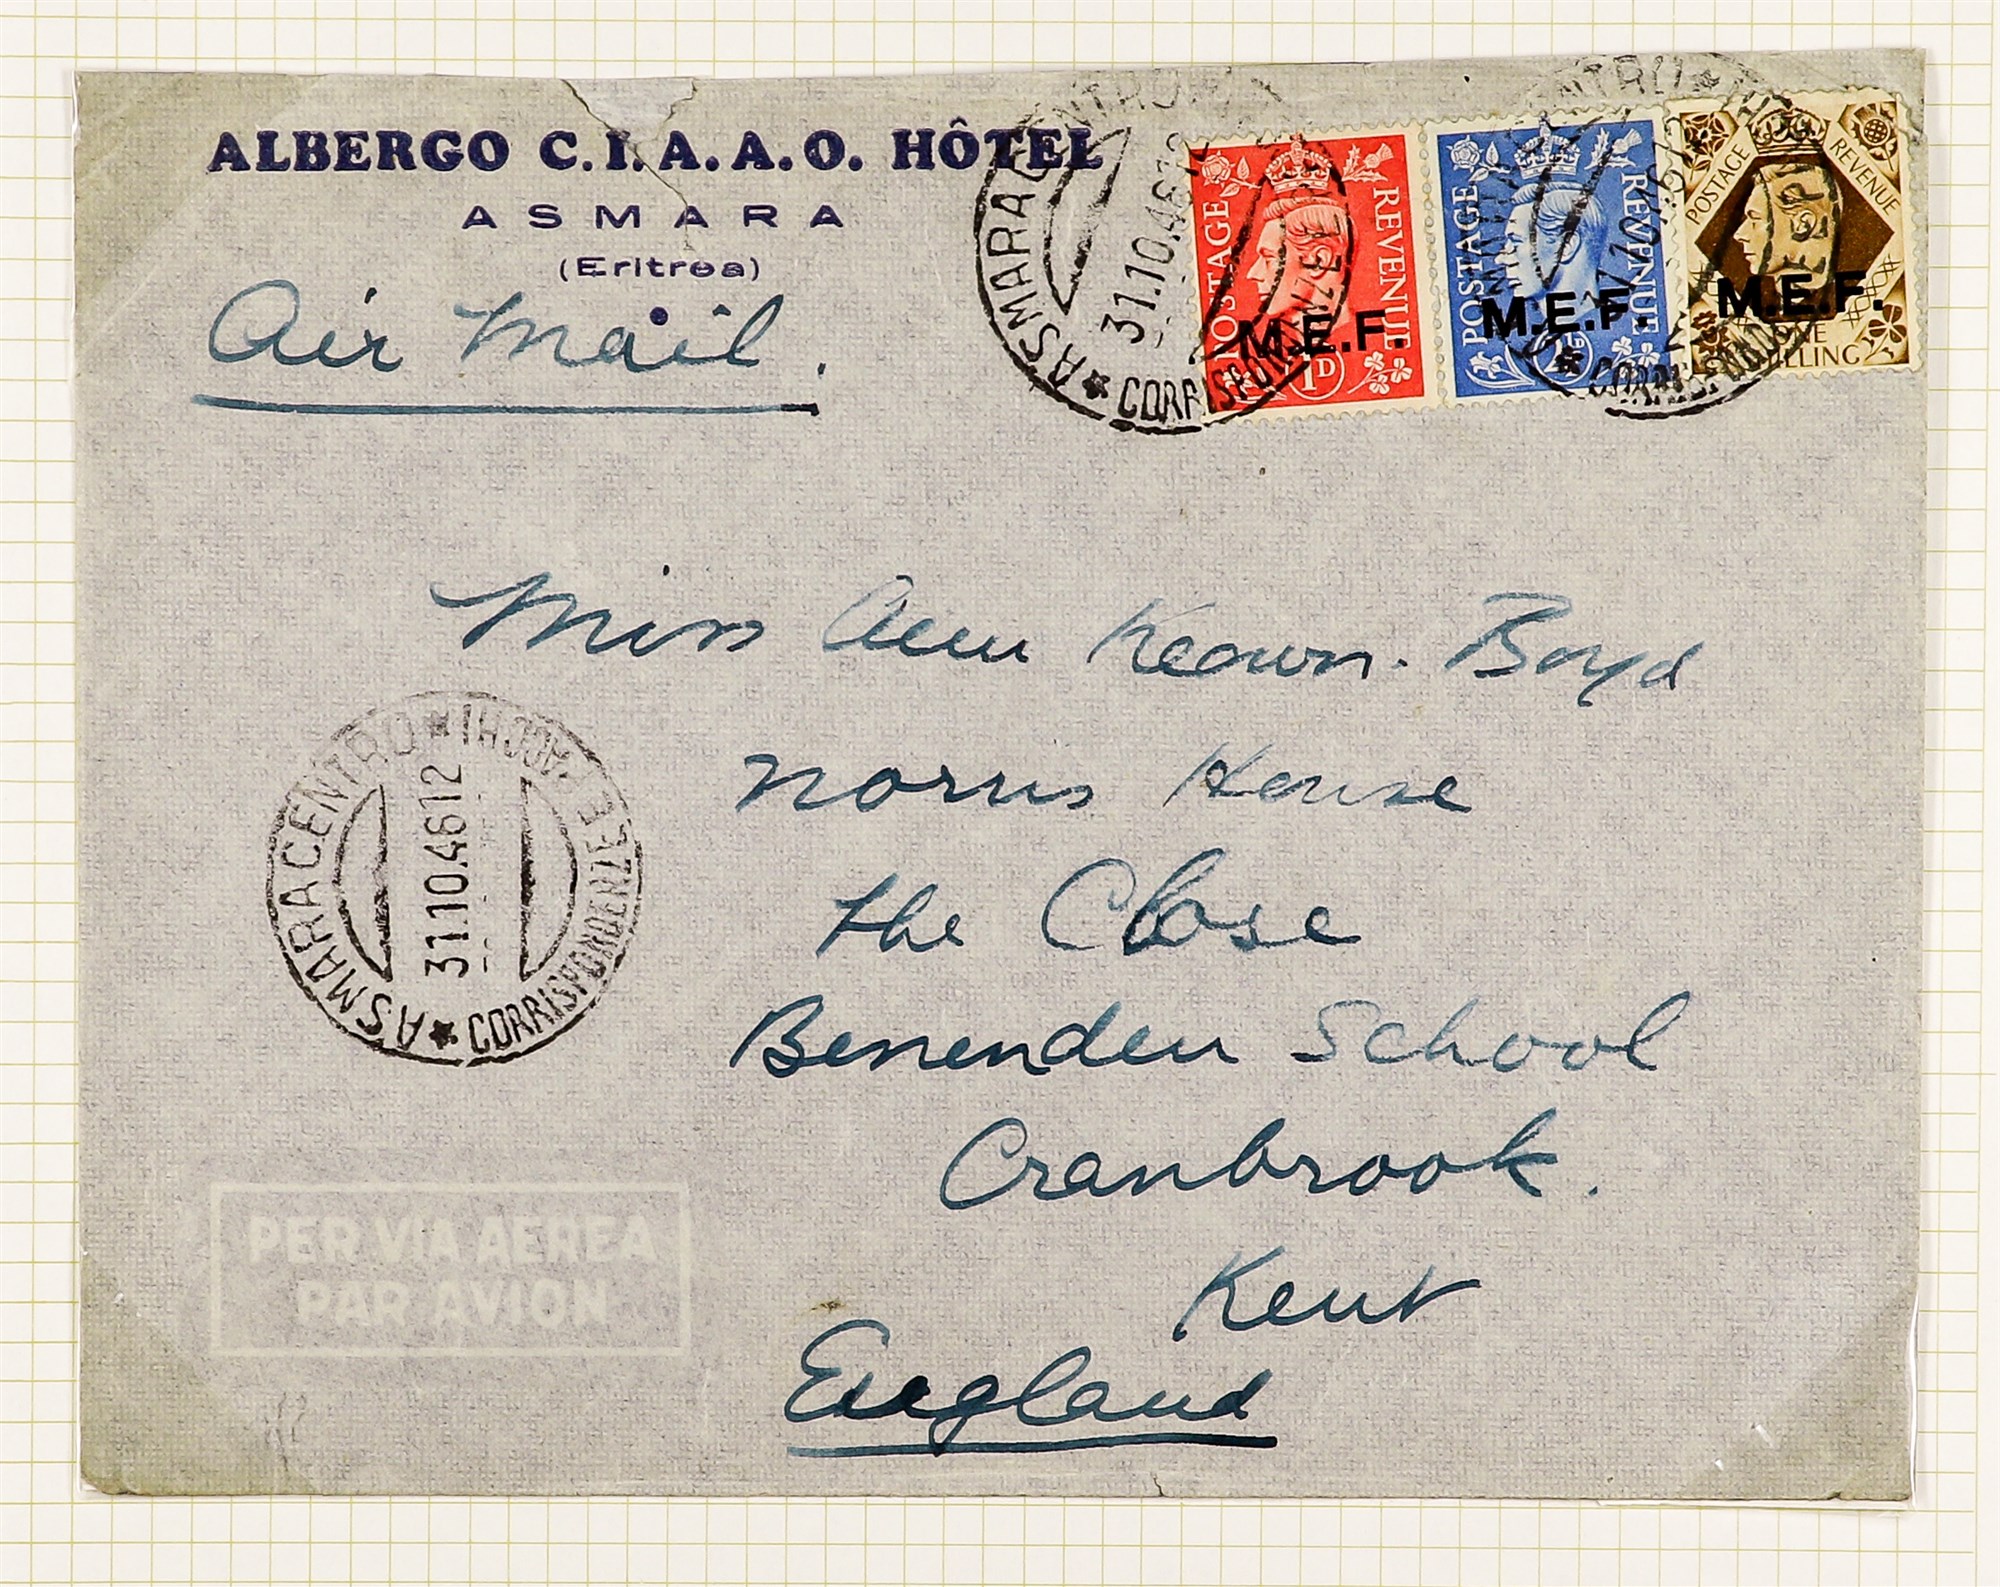 ALBERGO C.I.A.A.O. HÔTEL
ASMARA
(Eritrea)
Air Mail.
ASMARA CENTRO
31.10.46 12
CORRISPONDENZE
POSTAGE REVENUE
M.E.F.
1D
POSTAGE REVENUE
M.E.F.
2½D
POSTAGE REVENUE
M.E.F.
ONE
SHILLING
Miss Ann Keown-Boyd
Norris House
The Close
Benenden School
Cranbrook.
Kent
England
ASMARA CENTRO
31.10.46 12
CORRISPONDENZE E PACCHI
PER VIA AEREA
PAR AVION